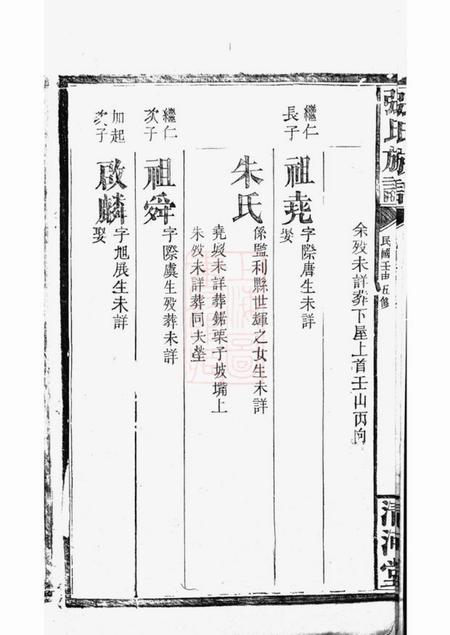 張氏族譜
民國壬申五修
清河堂
余歿未詳葬下屋上首壬山丙向
繼仁
長子
祖堯
字際唐生未詳
娶
朱氏
係監利縣世輝之女生未詳
堯歿未詳葬鋸栗子坡墈上
朱歿未詳葬同夫塋
繼仁
次子
祖舜
字際虞生歿葬未詳
加起
次子
啟麟
字旭展生未詳
娶